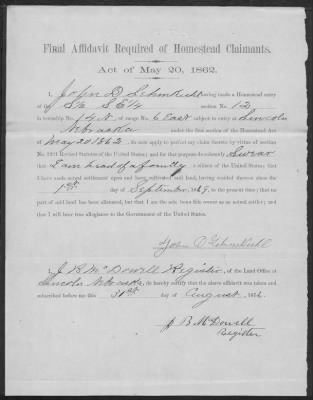 Final Affidavit Required of Homestead Claimants.
Act of May 20, 1862.
I, John D having made a Homestead entry
of the S½ SE¼ section No. 12
in township No. 14 N of range No. 6 East subject to entry at Lincoln
Nebraska under the first section of the Homestead Act
of May 20 1862, do now apply to perfect my claim thereto by virtue of section
No. 2291 Revised Statutes of the United States; and for that purpose do solemnly Swear
that I am head of a family a citizen of the United States; that
I have made actual settlement upon and have cultivated said land, having resided thereon since the
1st day of September, 1869, to the present time; that no
part of said land has been alienated, but that I am the sole bona fide owner as an actual settler; and
that I will bear true allegiance to the Government of the United States.
John D
I, J B McDowell Register, of the Land Office at
Lincoln Nebraska, do hereby certify that the above affidavit was taken and
subscribed before me this 31st day of August, 1876.
J B McDowell
Register